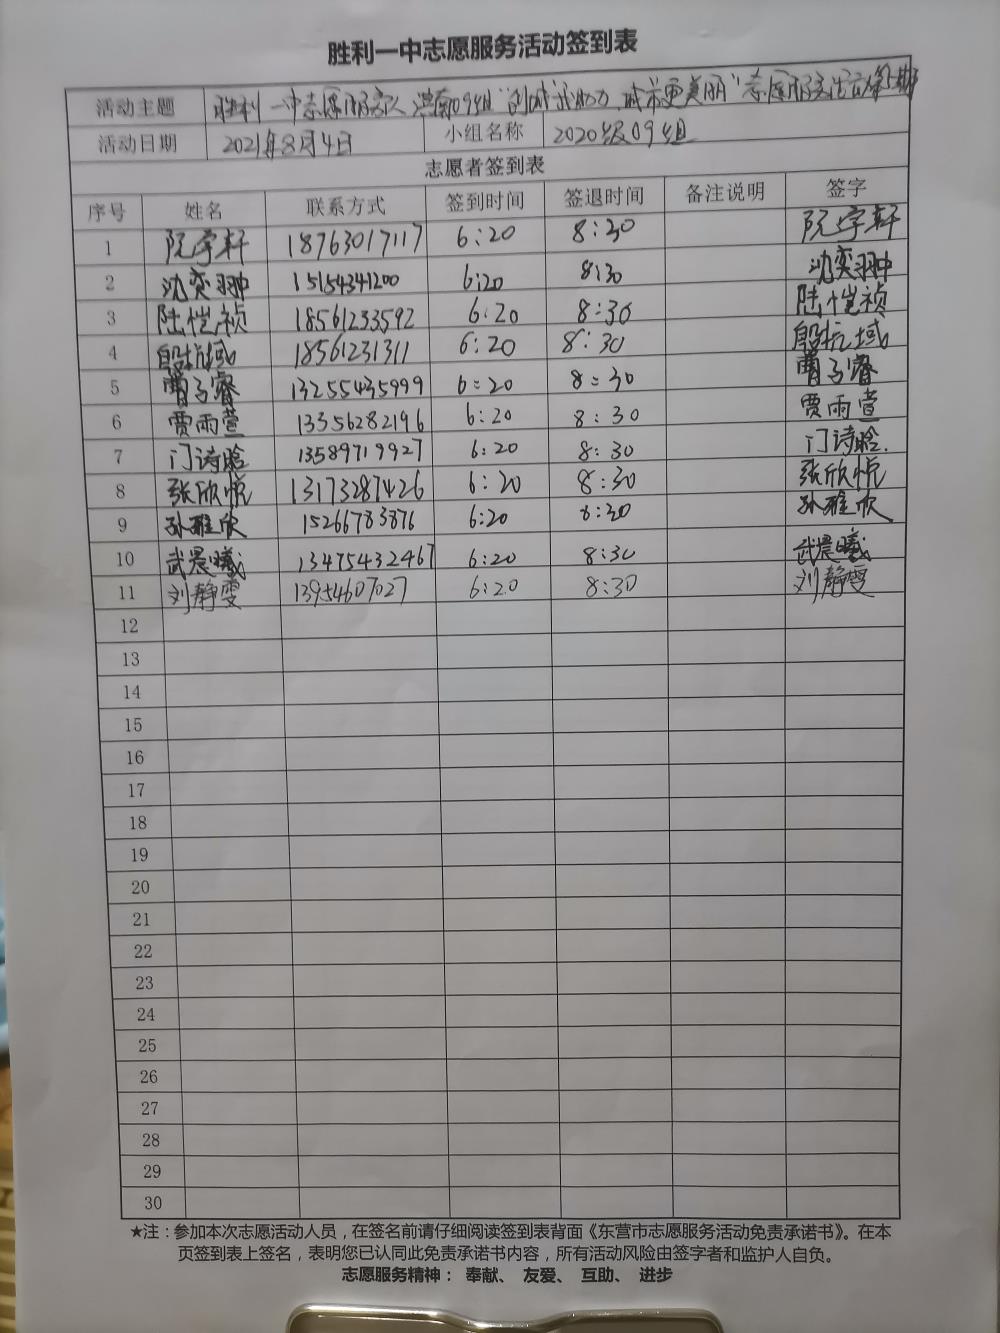 胜利一中志愿服务活动签到表
活动主题 胜利一中志愿服务队 09组"创城我助力,城市更美丽"志愿服务活动
活动日期 2021年8月4日 小组名称 2020级09组
志愿者签到表
序号 姓名 联系方式 签到时间 签退时间 备注说明 签字
1 阮宇轩 18763017117 6:20 8:30 阮宇轩
2 沈奕翀 15154341200 6:20 8:30 沈奕翀
3 陆恺祯 18561233592 6:20 8:30 陆恺祯
4 殷杭域 18561231311 6:20 8:30 殷杭域
5 曹子睿 13255435999 6:20 8:30 曹子睿
6 贾雨萱 13356282196 6:20 8:30 贾雨萱
7 门诗晗 13589719927 6:20 8:30 门诗晗.
8 张欣悦 13173287426 6:20 8:30 张欣悦
9 孙雅欣 15266783876 6:20 8:30 孙雅欣
10 武晨曦 13475432467 6:20 8:30 武晨曦
11 刘静雯 13954607027 6:20 8:30 刘静雯
12
13
14
15
16
17
18
19
20
21
22
23
24
25
26
27
28
29
30
★注:参加本次志愿活动人员,在签名前请仔细阅读签到表背面《东营市志愿服务活动免责承诺书》。在本
页签到表上签名,表明您已认同此免责承诺书内容,所有活动风险由签字者和监护人自负。
志愿服务精神: 奉献、 友爱、 互助、 进步